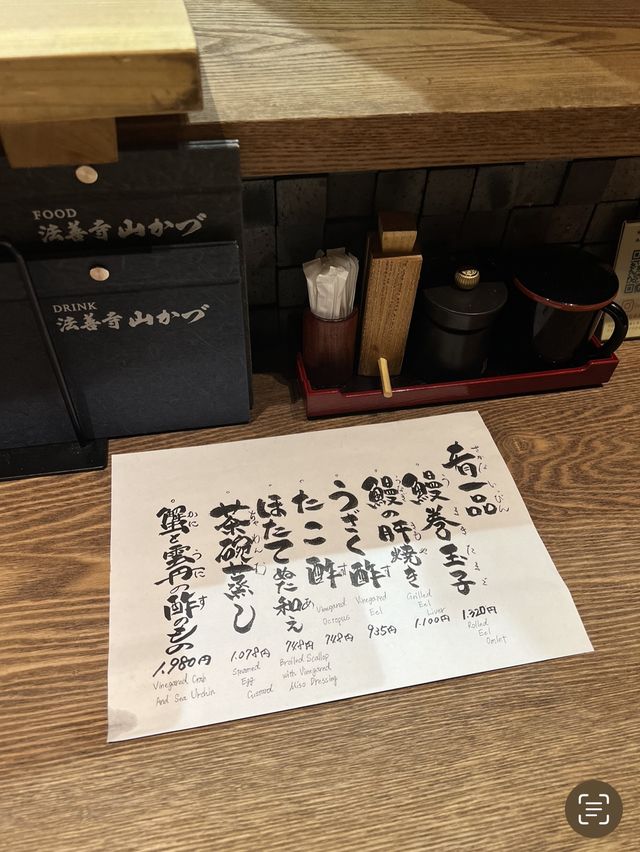 FOOD
法善寺 山かづ
DRINK
法善寺 山かづ
肴一品
さかないっぴん
鰻巻玉子
うまきたまご
1.320円
Rolled
Eel
Omlet
鰻の肝焼き
うなぎ きもや
1.100円
Grilled
Eel
Liver
うざく酢
す
935円
Vinegared
Eel
たこ酢
す
748円
Vinegared
Octopus
ほたてぬた和え
あ
748円
Broiled Scallop
with Vinegared
Miso Dressing
茶碗蒸し
ちゃわんむ
1.078円
Steamed
Egg
Custard
蟹と雲丹の酢のもの
かに うに す
1.980円
Vinegared Crab
And Sea Urchin